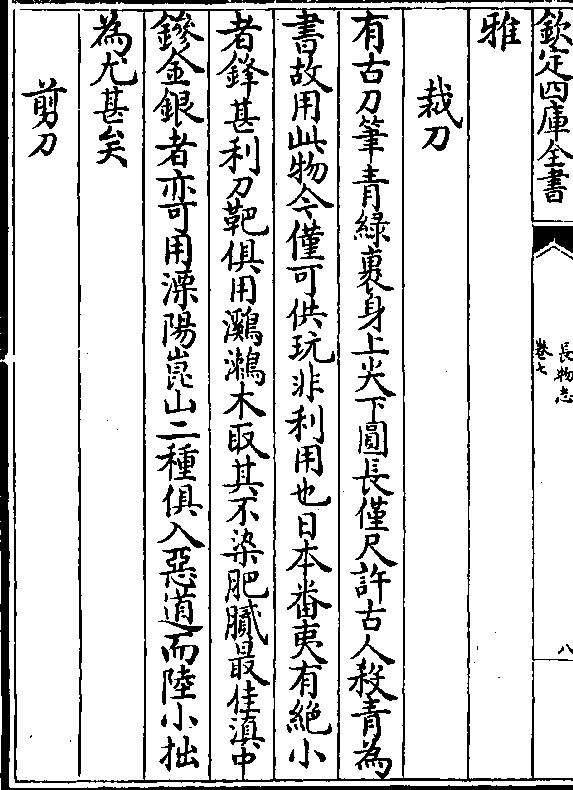 欽定四庫全書
長物志
卷七
八
雅
裁刀
有古刀筆青綠裹身上尖下圓長僅尺許古人殺青為
書故用此物今僅可供玩非利用也日本番夷有絶小
者鋒甚利刀靶俱用鸂鶒木取其不染肥膩最佳滇中
鏒金銀者亦可用溧陽崑山二種俱入惡道而陸小拙
為尤甚矣
剪刀